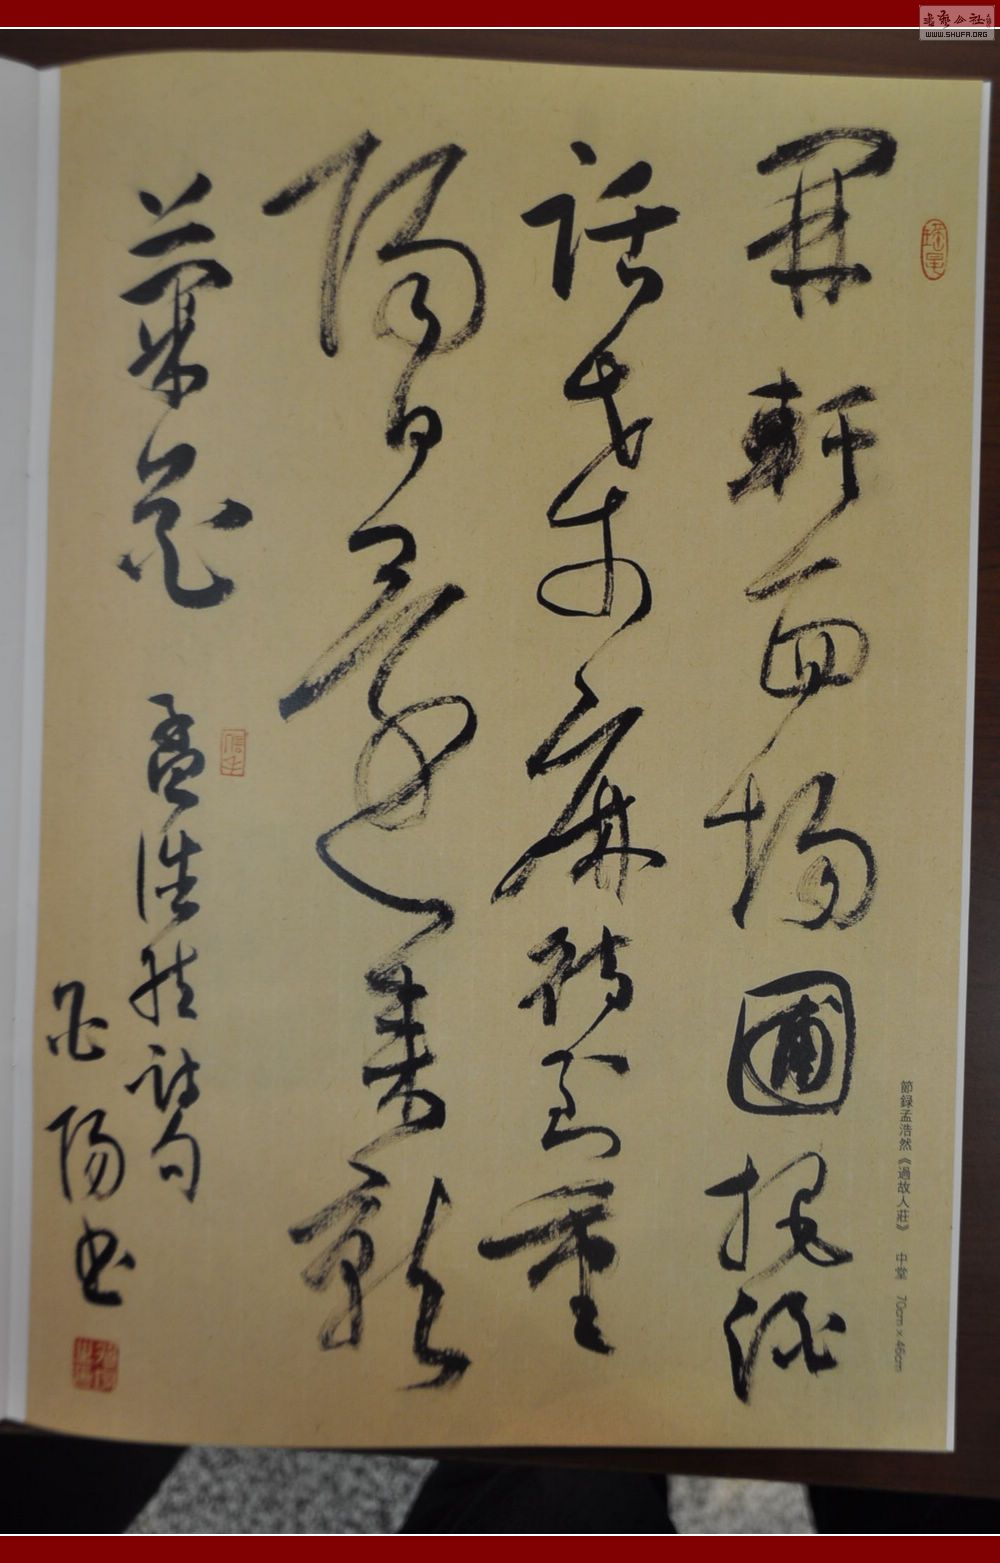 書藝公社
WWW.SHUFA.ORG
節録孟浩然《過故人莊》 中堂 70cm×46cm
開軒面場圃把酒
話桑麻待到重
陽日還來就
菊花 孟浩然詩句
陽書